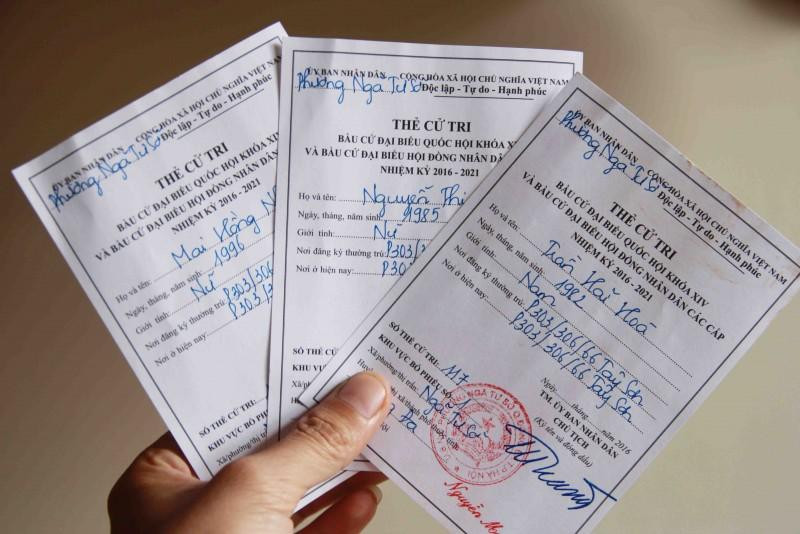 ỦY BAN NHÂN DÂN
CỘNG HÒA XÃ HỘI CHỦ NGHĨA VIỆT NAM
Phường Ngã Tư Sở
Độc lập - Tự do - Hạnh phúc
THẺ CỬ TRI
BẦU CỬ ĐẠI BIỂU QUỐC HỘI KHÓA XIV
VÀ BẦU CỬ ĐẠI BIỂU HỘI ĐỒNG NHÂN DÂN
NHIỆM KỲ 2016 - 2021
Họ và tên: Mai Hồng
Ngày, tháng, năm sinh: 1996
Giới tính: Nữ
Nơi đăng ký thường trú: P303/306
Nơi ở hiện nay: P303/3
SỐ THẺ CỬ TRI:
KHU VỰC BỎ
Xã/phường/thị
ỦY BAN NHÂN DÂN
CỘNG HÒA XÃ HỘI CHỦ NGHĨA VIỆT NAM
Phường Ngã Tư Sở
Độc lập - Tự do - Hạnh phúc
THẺ CỬ TRI
BẦU CỬ ĐẠI BIỂU QUỐC HỘI KHÓA XIV
VÀ BẦU CỬ ĐẠI BIỂU HỘI ĐỒNG NHÂN DÂN
NHIỆM KỲ 2016 - 2021
Họ và tên: Nguyễn Thị
Ngày, tháng, năm sinh: 1985
Giới tính: Nữ
Nơi đăng ký thường trú: P303/
Nơi ở hiện nay: P30
SỐ THẺ CỬ
KHU VỰC
Xã/phường
ỦY BAN NHÂN DÂN
CỘNG HÒA XÃ HỘI CHỦ NGHĨA VIỆT NAM
Phường Ngã Tư Sở
Độc lập - Tự do - Hạnh phúc
THẺ CỬ TRI
BẦU CỬ ĐẠI BIỂU QUỐC HỘI KHÓA XIV
VÀ BẦU CỬ ĐẠI BIỂU HỘI ĐỒNG NHÂN DÂN CÁC CẤP
NHIỆM KỲ 2016 - 2021
Họ và tên: Trần Hải Hoà
Ngày, tháng, năm sinh: 1982
Giới tính: Nam
Nơi đăng ký thường trú: P303/306/66 Tây Sơn
Nơi ở hiện nay: P303/306/66 Tây Sơn
SỐ THẺ CỬ TRI: 117
KHU VỰC BỎ PHIẾU SỐ
Xã/phường/thị trấn: Ngã Tư Sở
Ngày tháng năm 2016
TM. ỦY BAN NHÂN DÂN
CHỦ TỊCH
(Ký tên và đóng dấu)
TP HÀ NỘI
Nguyễn